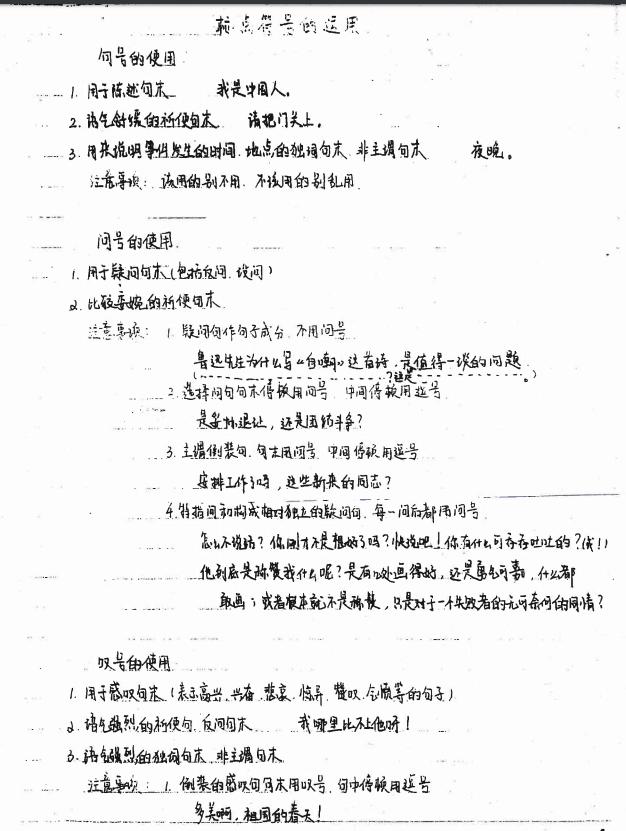 标点符号的运用
句号的使用
1. 用于陈述句末 我是中国人。
2. 语气舒缓的祈使句末 请把门关上。
3. 用来说明事件发生的时间、地点的独词句末、非主谓句末 夜晚。
注意事项：该用的别不用、不该用的别乱用
问号的使用
1. 用于疑问句末（包括反问、设问）
2. 比较委婉的祈使句末
注意事项： 1. 疑问句作句子成分、不用问号
鲁迅先生为什么写《自嘲》这首诗，是值得一谈的问题
（ ？这是 。）
2. 选择问句句末停顿用问号、中间停顿用逗号
是妥协退让，还是团结斗争？
3. 主谓倒装句、句末用问号、中间停顿用逗号
安排工作了吗，这些新来的同志？
4. 特指问和构成相对独立的疑问句、每一问后都用问号
怎么不说话？你刚才不是想好了吗？快说吧！你有什么可吞吞吐吐的？
他到底是称赞我什么呢？是有几处画得好，还是什么都
敢画；或者根本就不是称赞，只是对于一个失败者的无可奈何的同情？
叹号的使用
1. 用于感叹句末（表示高兴、兴奋、悲哀、惊异、赞叹、愤等的句子）
2. 语气强烈的祈使句、反问句末 我哪里比不上他呀！
3. 语气强烈的独词句末、非主谓句末
注意事项： 1. 倒装的感叹句句末用叹号、句中停顿用逗号
多美啊，祖国的春天！